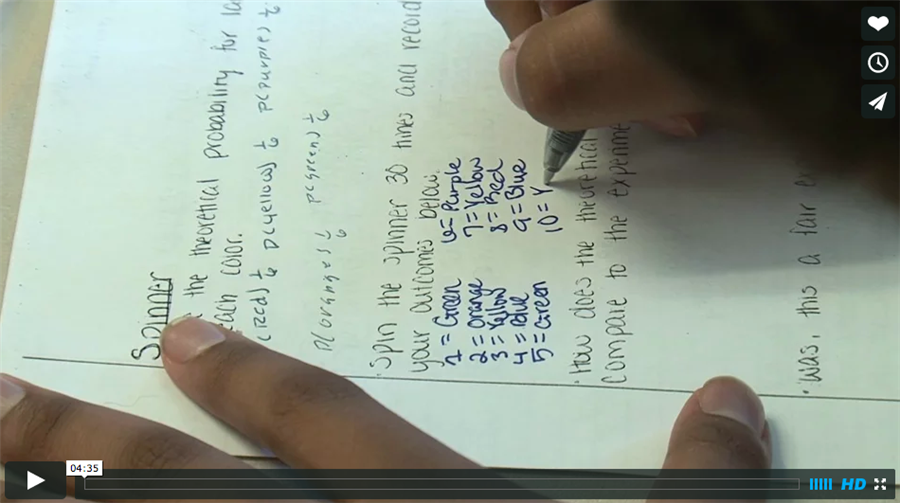 Spinner
the theoretical probability for
each color.
(red) 1/6 p(yellow) 1/6 p(purple) 1/6
p(orange) 1/6 p(green) 1/6
· Spin the spinner 30 times and record
your outcomes below.
1 = Green 6 = Purple
2 = orange 7 = Yellow
3 = Yellow 8 = Red
4 = Blue 9 = Blue
5 = Green 10 = Y
· How does the theoretical
compare to the experime
· Was, this a fair
04:35
HD